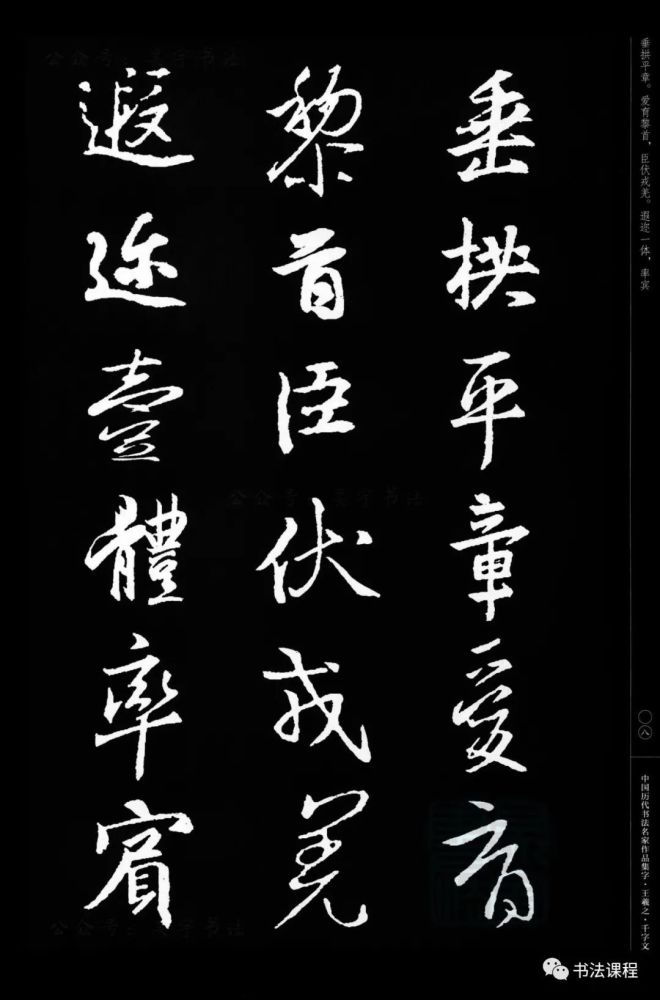 垂拱平章愛育
黎首臣伏戎羌
遐迩壹體率賓
垂拱平章。爱育黎首，臣伏戎羌。遐迩一体，率宾
〇八
中国历代书法名家作品集字·王羲之·千字文
书法课程